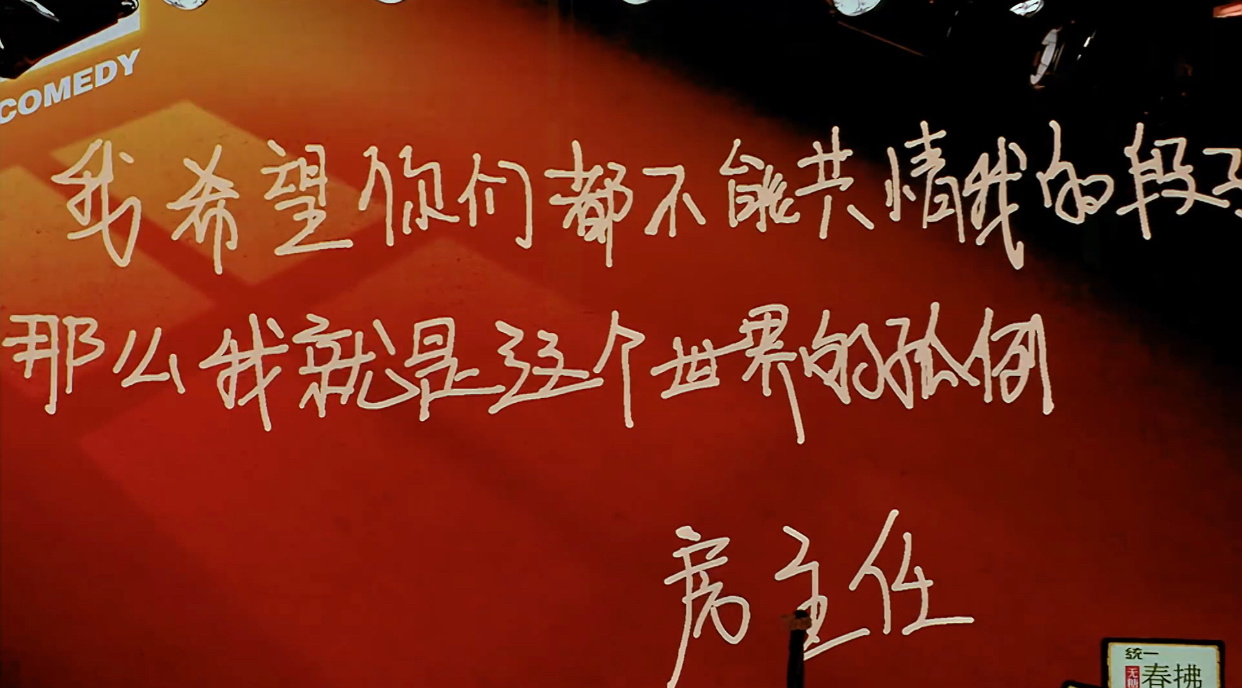 COMEDY
我希望你们都不能共情我的段子
那么我就是这个世界的孤例
房主任
统一
无糖
春拂